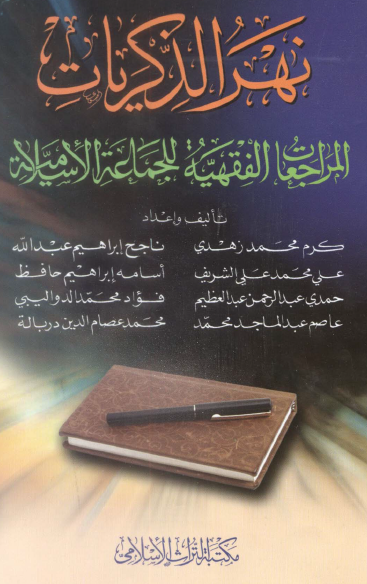 نهر الذكريات
المراجعات الفقهية للجماعة الإسلامية
تأليف وإعداد
كرم محمد زهدي ناجح إبراهيم عبد الله
علي محمد علي الشريف أسامه إبراهيم حافظ
حمدي عبد الرحمن عبد العظيم فؤاد محمد الدواليبي
عاصم عبد الماجد محمد محمد عصام الدين دربالة
مكتبة التراث الإسلامي